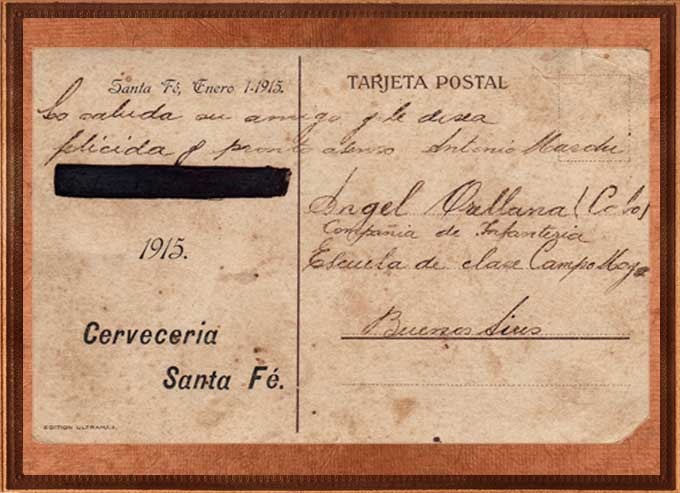 Santa Fé, Enero 1-1915.
Lo saluda su amigo y le desea
felicida y pronto asenso Antonio Marchi
1915.
Cerveceria
Santa Fé.
EDITION ULTRAMAR.
TARJETA POSTAL
Angel Orellana (Cabo)
Compañia de Infanteria
Escuela de clase Campo Mayo
Buenos Aires